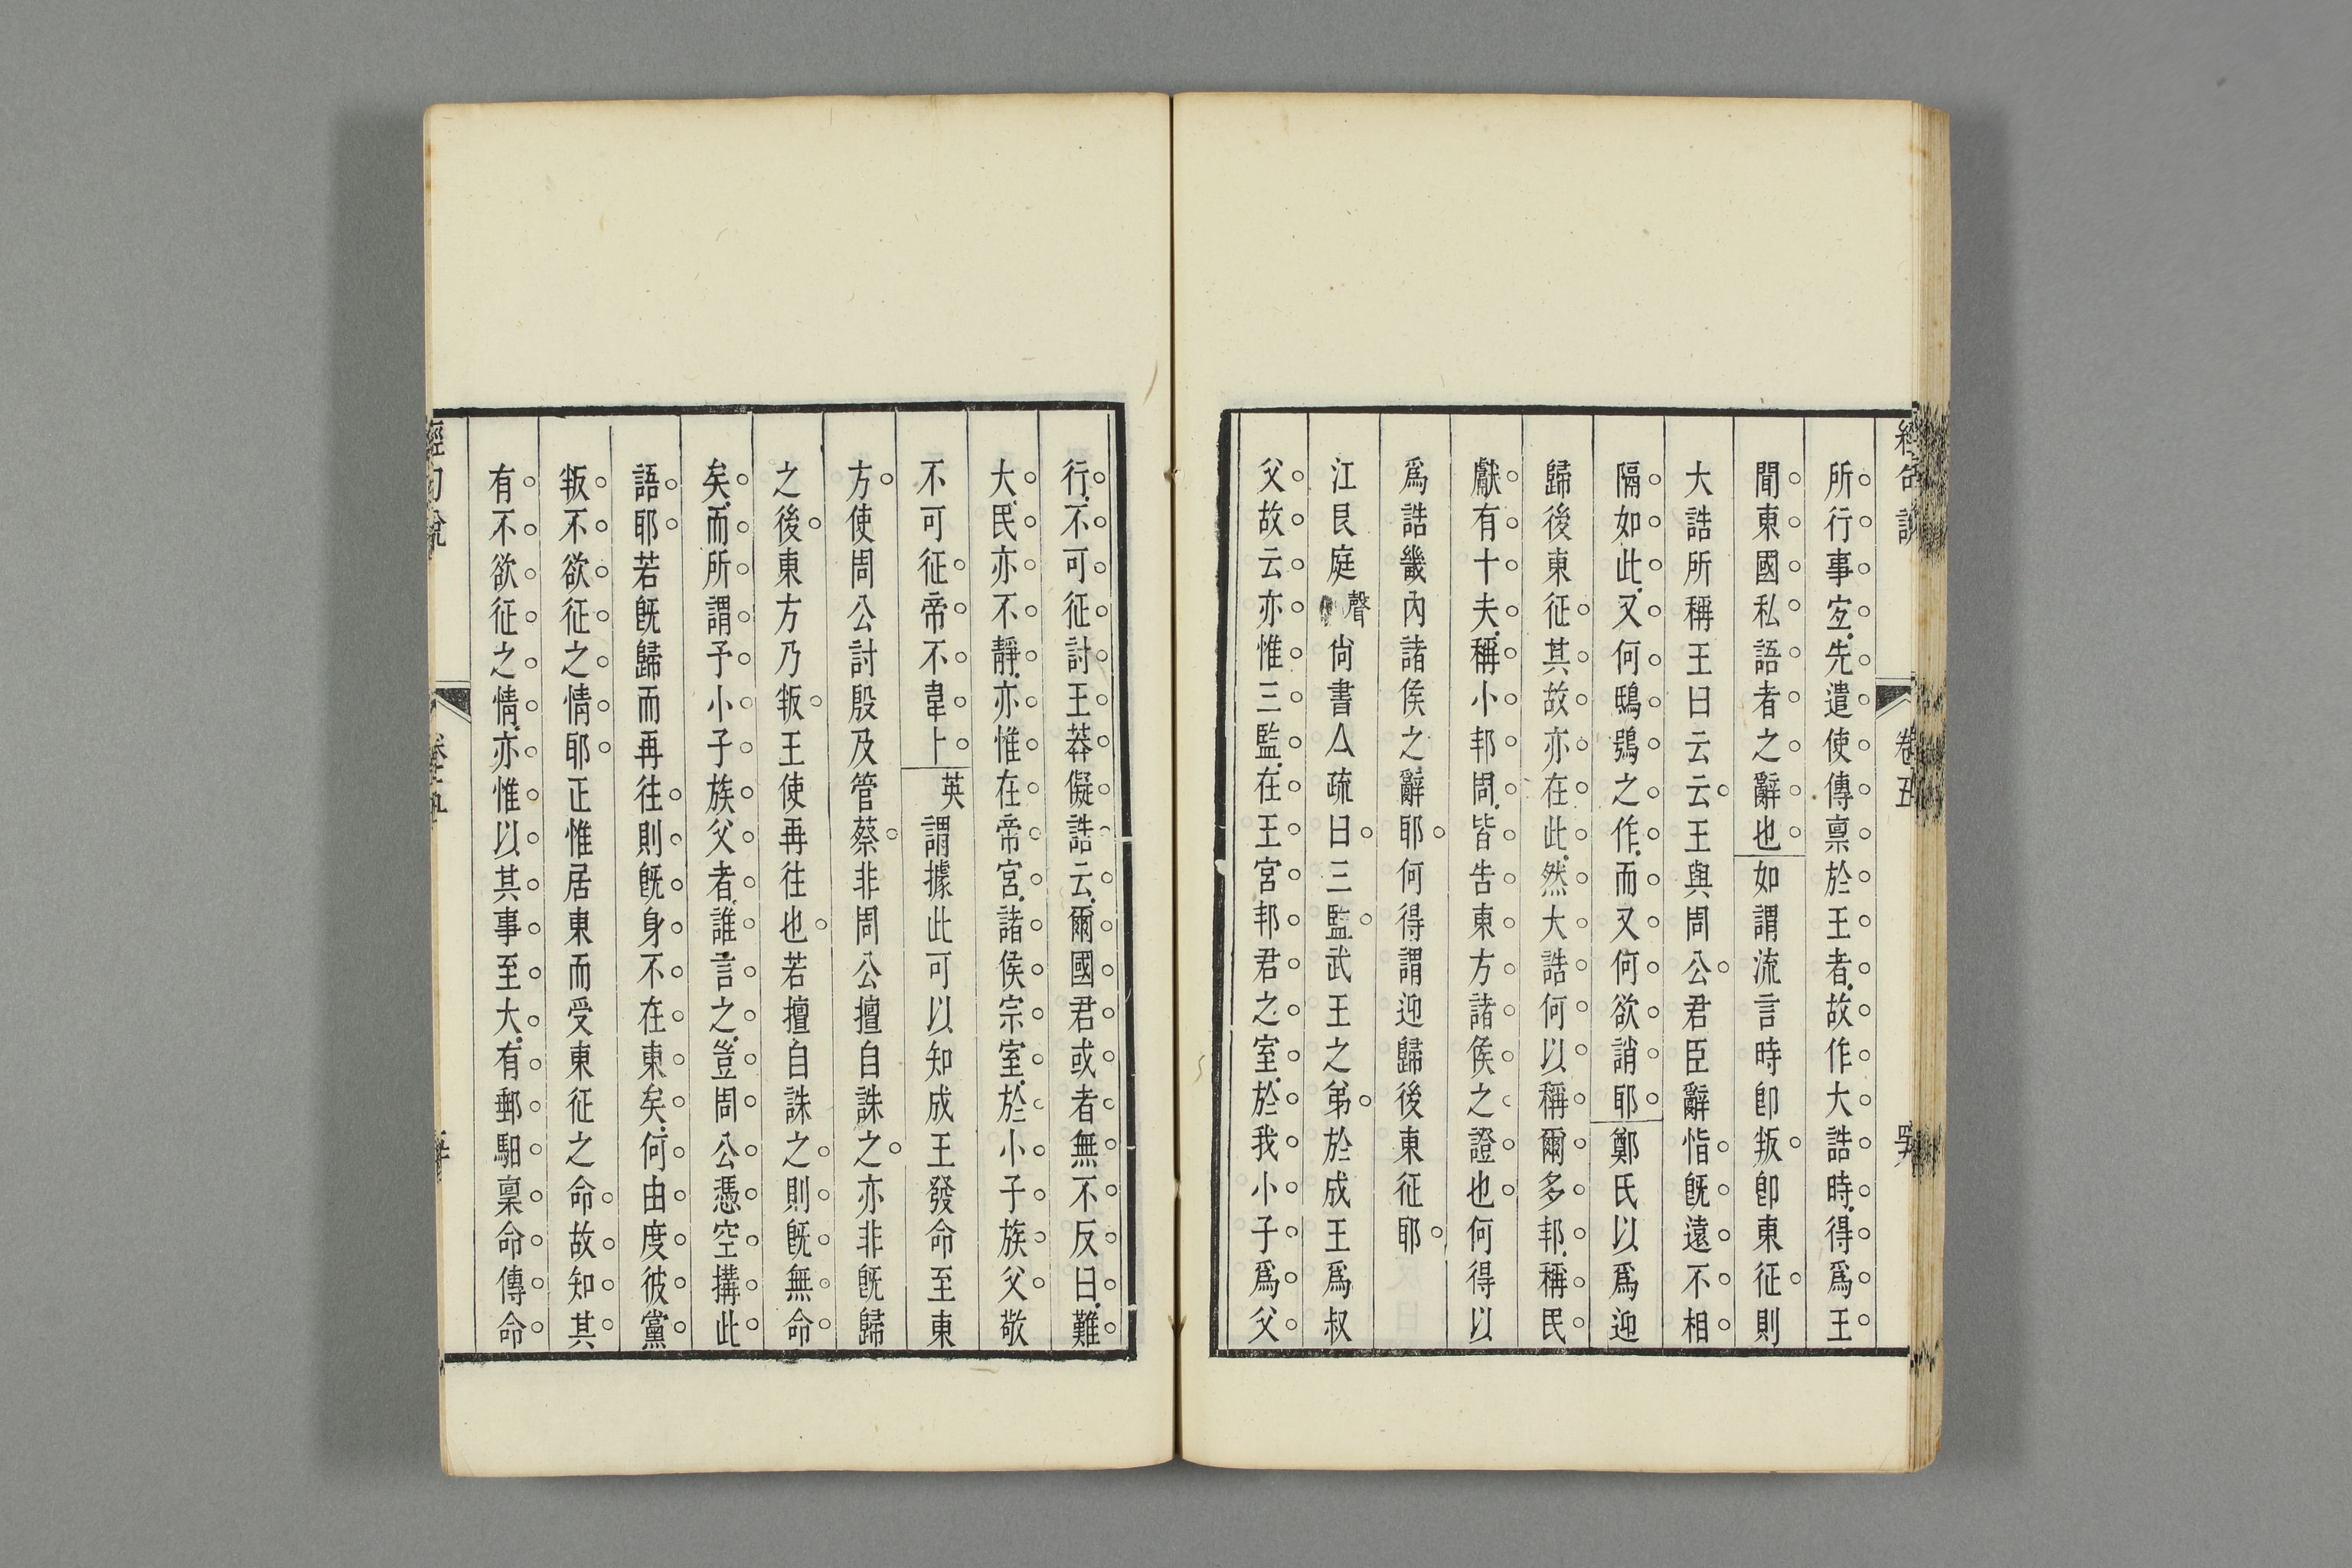 所行事宐先遣使傳稟於王者故作大誥時得爲王
聞東國私語者之辭也如謂流言時卽叛卽東征則
大誥所稱王曰云云王與周公君臣辭恉旣遠不相
隔如此又何鴟鴞之作而又何欲誚耶鄭氏以爲迎
歸後東征其故亦在此然大誥何以稱爾多邦稱民
獻有十夫稱小邦周皆告東方諸侯之證也何得以
爲誥畿內諸侯之辭耶何得謂迎歸後東征耶
江艮庭聲尙書亼疏曰三監武王之弟於成王爲叔
父故云亦惟三監在王宮邦君之室於我小子爲父
行不可征討王莽儗誥云爾國君或者無不反曰難
大民亦不靜亦惟在帝宮諸侯宗室於小子族父敬
不可征帝不韋卜英謂據此可以知成王發命至東
方使周公討殷及管蔡非周公擅自誅之亦非旣歸
之後東方乃叛王使再往也若擅自誅之則旣無命
矣而所謂予小子族父者誰言之豈周公憑空搆此
語耶若旣歸而再往則旣身不在東矣何由度彼黨
叛不欲征之情耶正惟居東而受東征之命故知其
有不欲征之情亦惟以其事至大有郵馹稟命傳命